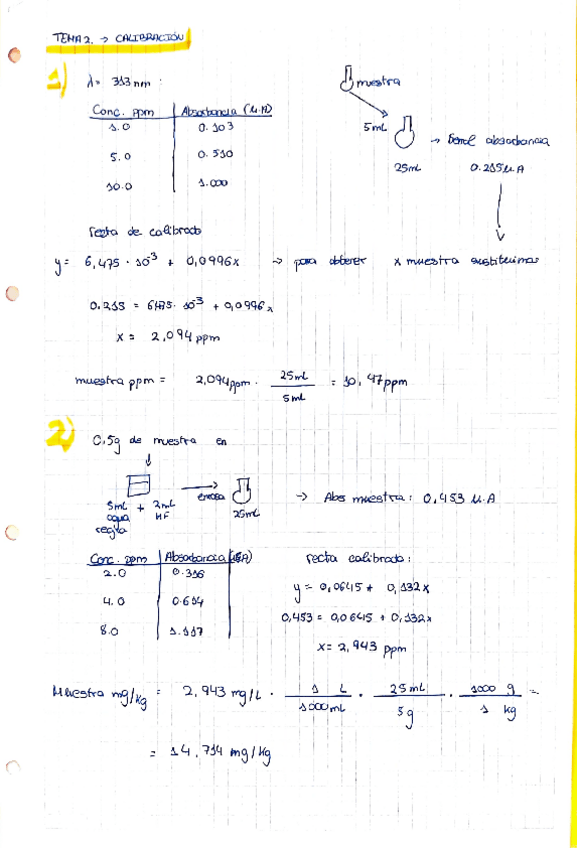 TEMA 2. → CALIBRACIÓN
1)
λ = 313 nm :
Conc. ppm Absorbancia (U.A)
1.0 0.103
5.0 0.510
10.0 1.000
muestra
5mL
→ Señal absorbancia
25mL 0.215 U.A
recta de calibrado
y = 6,475 · 10⁻³ + 0,0996x → para obtener x muestra sustituimos
0.215 = 6,475 · 10⁻³ + 0,0996x
x = 2,094 ppm
muestra ppm = 2,094ppm · 25mL / 5mL = 10,47ppm
2)
0,5g de muestra en
5mL + 2mL enrasa 25mL
agua HF
regia
→ Abs muestra: 0,453 U.A
Conc. ppm Absorbancia (U.A)
2.0 0.316
4.0 0.614
8.0 1.117
recta calibrado:
y = 0,0645 + 0,132x
0,453 = 0,0645 + 0,132x
x = 2,943 ppm
Muestra mg/kg = 2,943 mg/L · 1 L / 1000mL · 25mL / 5g · 1000 g / 1 kg =
= 14,714 mg/kg